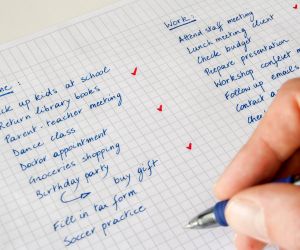 Pick up kids at school
Return library books
Parent-teacher meeting
Dance class
Doctor appointment
Groceries shopping
Birthday party
buy gift
Fill in tax form
Soccer practice
Work:
Attend staff meeting
Lunch meeting client
Check budget
Prepare presentation
Workshop
Follow up emails
Contact